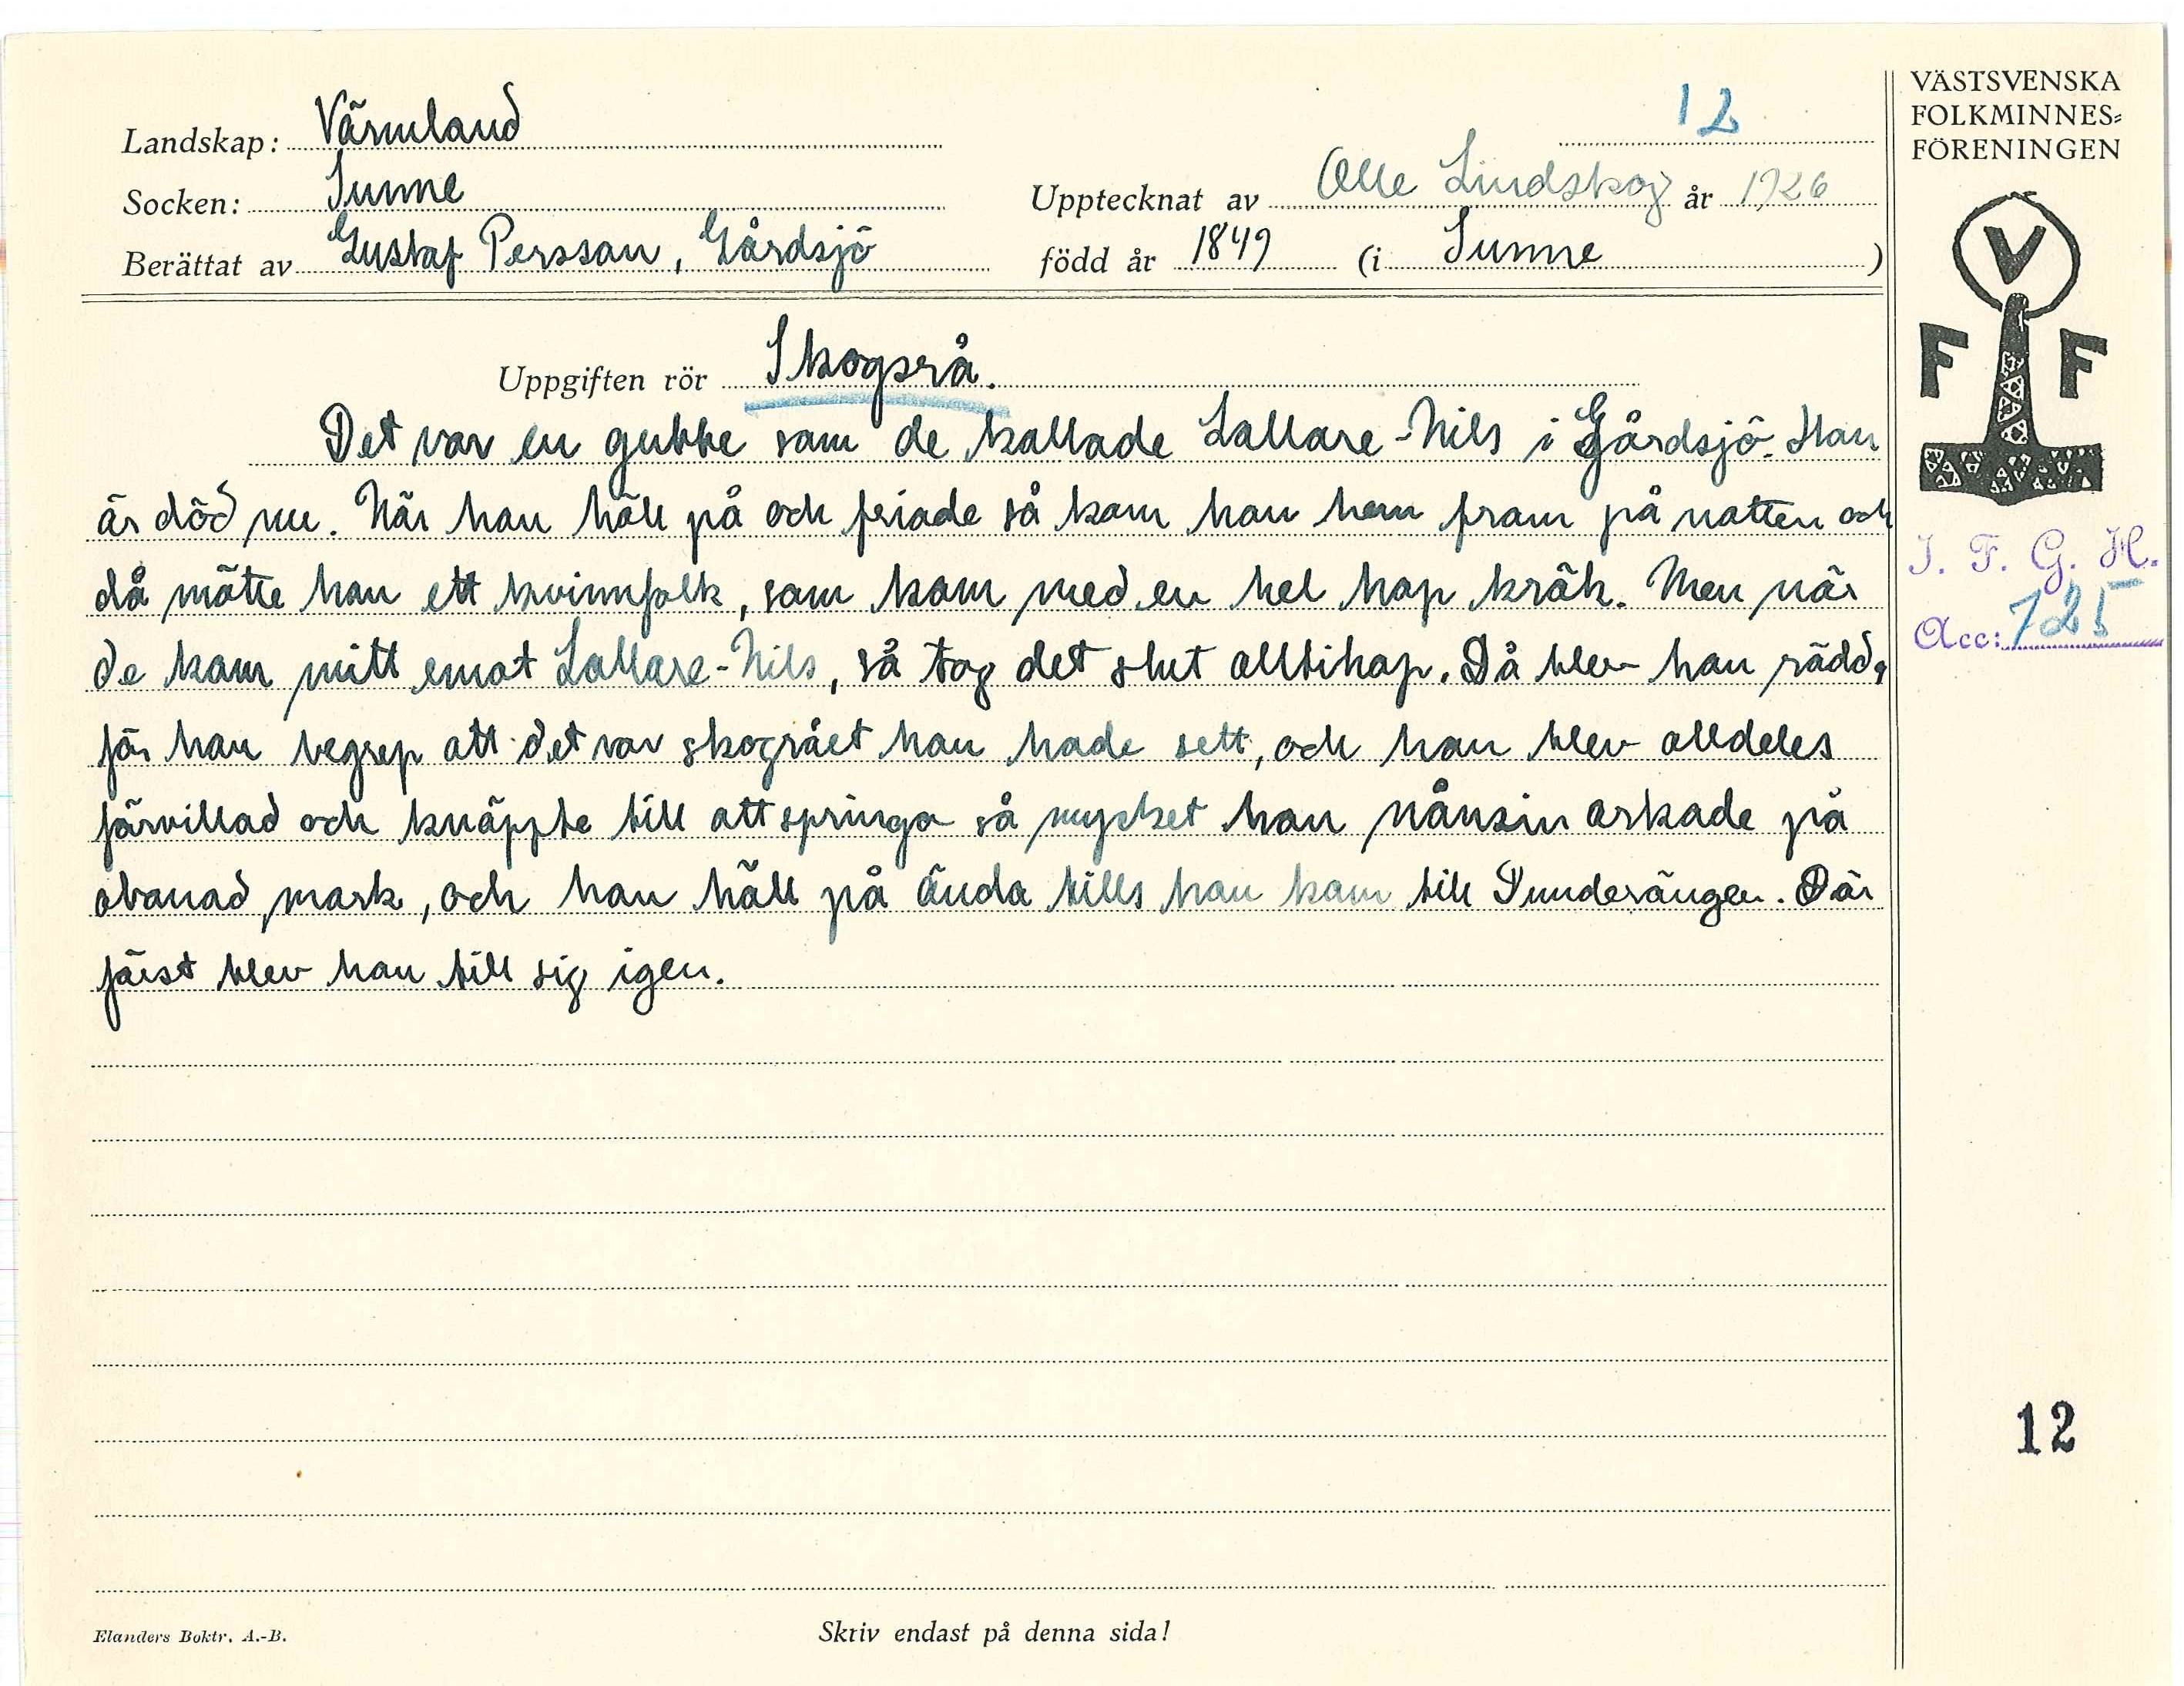 VÄSTSVENSKA
FOLKMINNES=
FÖRENINGEN
12
Landskap: Värmland
Socken: Sunne
Upptecknat av Olle Lindskog år 1926
Berättat av Gustaf Persson, Gårdsjö född år 1849 (i Sunne)
V
F F
Uppgiften rör Skogsrå.
Det var en gubbe som de kallade Lallare-Nils i Gårdsjö. Han
är död nu. När han höll på och friade så kom han hem fram på natten och
då mötte han ett kvinnfolk, som kom med en hel hop kräk. Men när
de kom mitt emot Lallare-Nils, så tog det slut alltihop. Då blev han rädd,
för han begrep att det var skogrået han hade sett, och han blev alldeles
förvillad och knäppte till att springa så mycket han nånsin orkade på
obanad mark, och han höll på ända tills han kom till Sunderängen. Där
först blev han till sig igen.
I. F. G. H.
Acc: 725
12
Elanders Boktr. A.-B.
Skriv endast på denna sida!